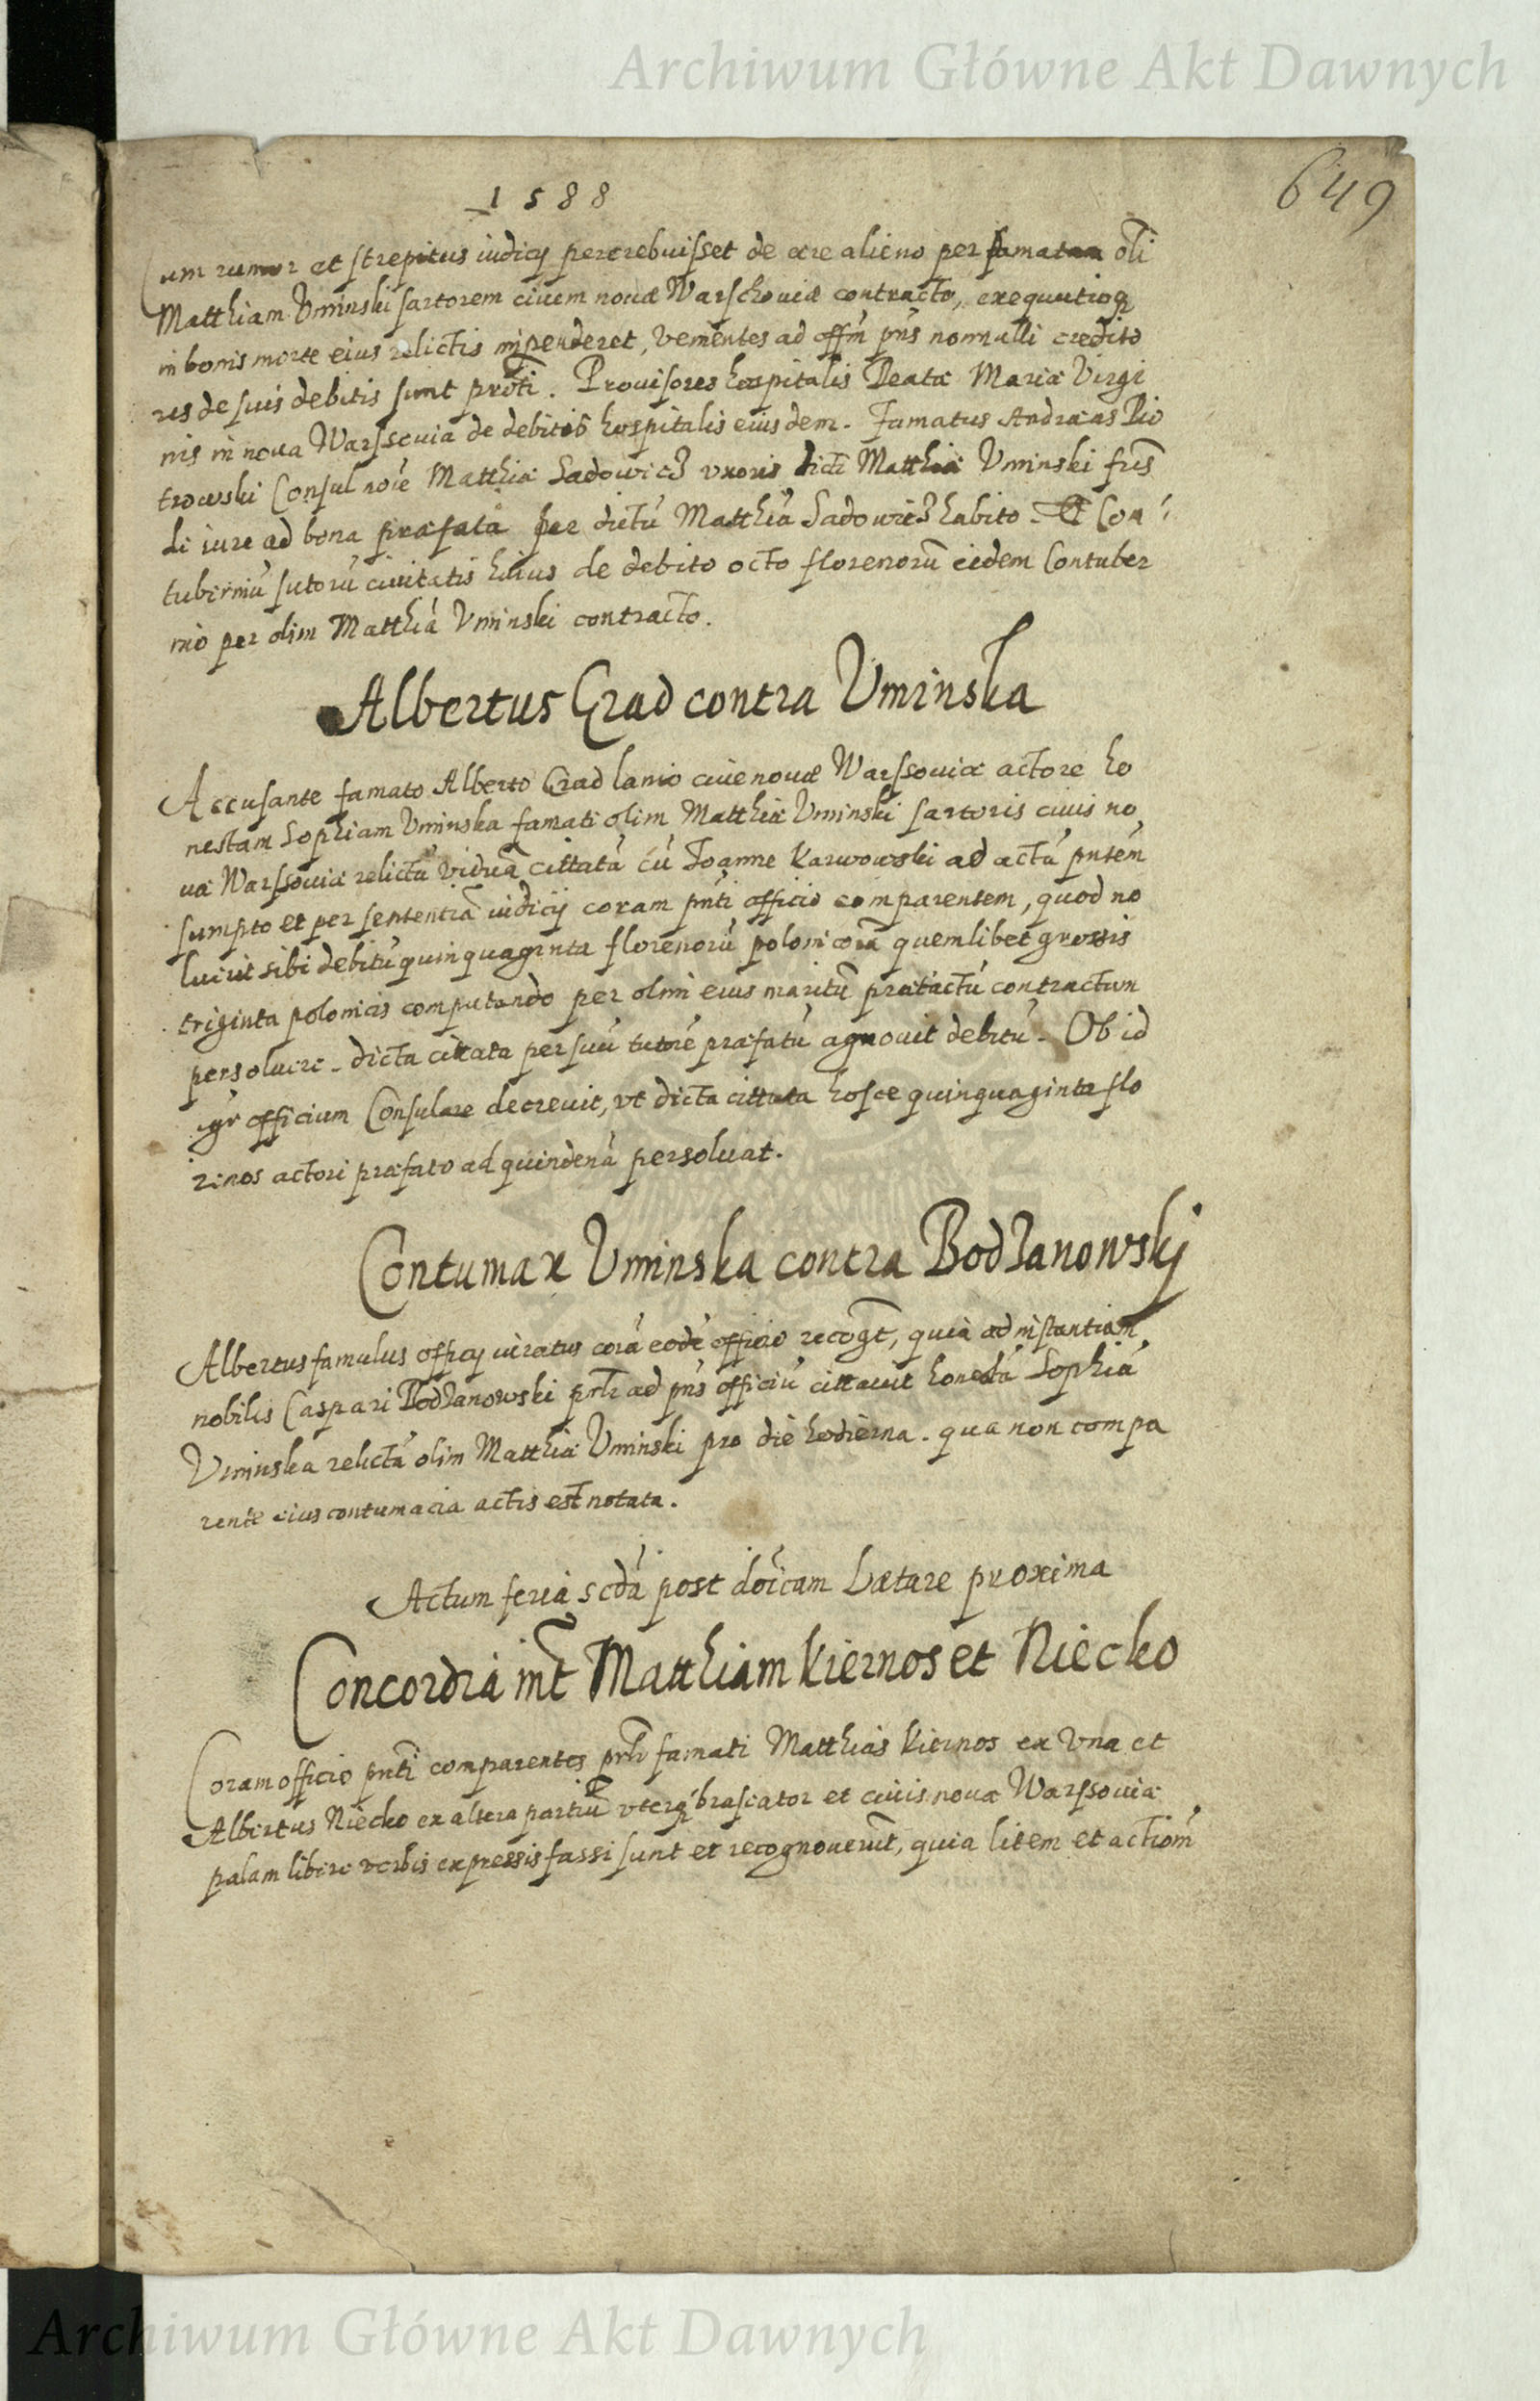 Archiwum Główne Akt Dawnych
649
1588
Cum rumor et strepitus iudicij percrebuisset de aere alieno per famatum oli
Matthiam Vminski sartorem ciuem nouæ Warschouiæ contracto, exequutioq
in bonis morte eius relictis impenderet, venientes ad offm pns nonnulli credito
res de suis debitis sunt prоti. Prouisores hospitalis Beatæ Mariæ Virgi
nis in noua Warssouia de debitis hospitalis eiusdem. Famatus Andræas Pio
trowski Consul Matthiæ Sadowicz vxoris dicti Matthiæ Vminski
de iure ad bona præfata per dictū Matthiā Sadowicz habito. Et Con
tuberniū sutorū ciuitatis huius de debito octo florenorū eidem Contuber
nio per olim Matthiā Vminski contracto.
Albertus Grad contra Vminska
Accusante famato Alberto Grad lanio ciue nouæ Warssouiæ actore ho
nestam Sophiam Vminska famati olim Matthiæ Vminski sartoris ciuis no
uæ Warssouiæ relictā viduā cittatā cū Joanne Karwowski ad actū pntem
sumpto et per sententiā iudicij coram pnti officio comparentem, quod no
luerit sibi debitū quinquaginta florenorū polonicorū quemlibet grossis
triginta polonicis computando per olim eius maritū prætactū contractum
persoluere. dicta cittata per suū tutorē præfatū agnouit debitū. Ob id
gr officium Consulare decreuit, vt dicta cittata hosce quinquaginta flo
renos actori præfato ad quindenā persoluat.
Contumax Vminska contra Bodzanowskj
Albertus famulus officij iuratus corā eodē officio recogt, quia ad instantiam
nobilis Caspari Bodzanowski prlr ad pns officiū cittauit honestā Sophiā
Vminska relictā olim Matthiæ Vminski pro die hodierna. qua non compa
rente eius contumacia actis est notata.
Actum feria scdā post doicam Lætare proxima
Concordia int Matthiam Kiernos et Niecko
Coram officio pnti comparentes prlr famati Matthias Kiernos ex vna et
Albertus Niecko ex altera partiū vterq braseator et ciuis nouæ Warssouiæ
palam libere verbis expressis fassi sunt et recognouerūt, quia litem et actionē
Archiwum Główne Akt Dawnych